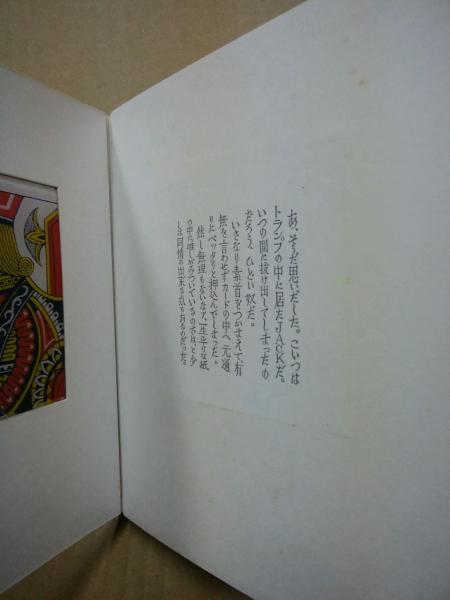 あ、そうだ思いだした。こいつは
トランプの中に居たJACKだ。
いつの間に抜け出してしまったの
だろう、ひどい奴だ。
いきなり素首をつかまえて、有
無を言わせずカードの中へ元通
りにペッタリと押込んでしまった。
然し無理もないなア、一生平らな紙
の中に唯しがみついているのでは、と少
しは同情の出来る点もあるのだった。